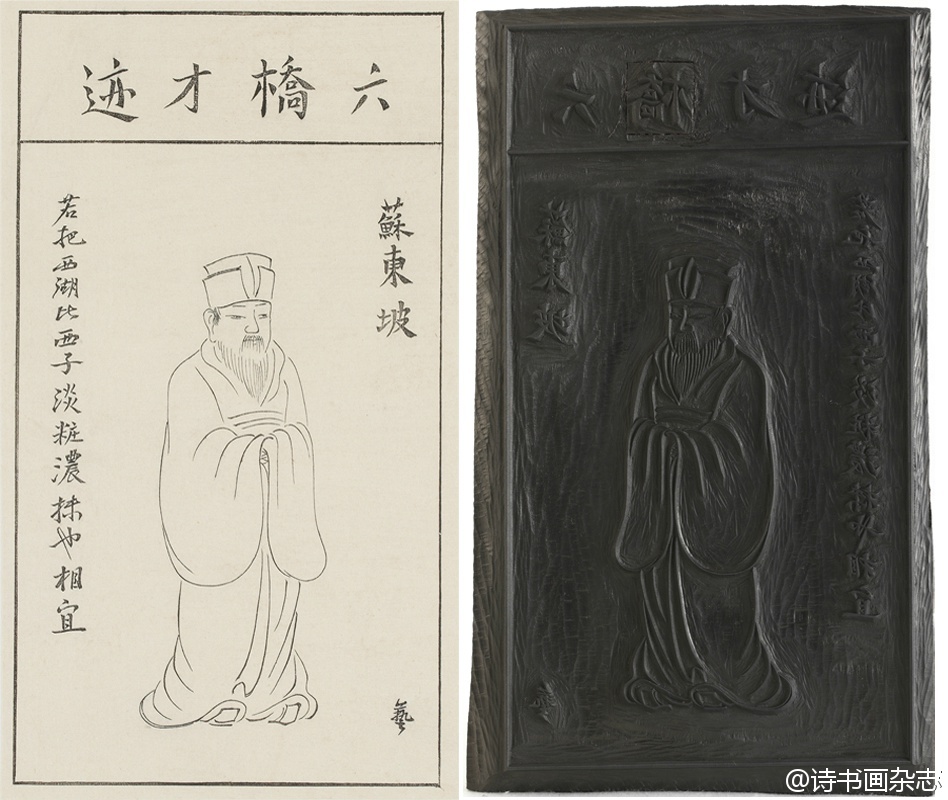 六橋才迹
蘇東坡
若把西湖比西子淡粧濃抹也相宜
藝
六橋才迹
蘇東坡
若把西湖比西子淡粧濃抹也相宜
藝
@诗书画杂志